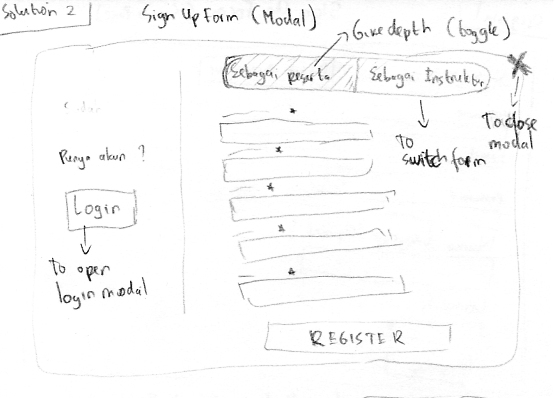 Solution 2
Sign Up Form (Modal)
Give depth (toggle)
Sebagai peserta
Sebagai Instruktur
To close
modal
To
switch form
Punya akun ?
Login
To open
login modal
REGISTER